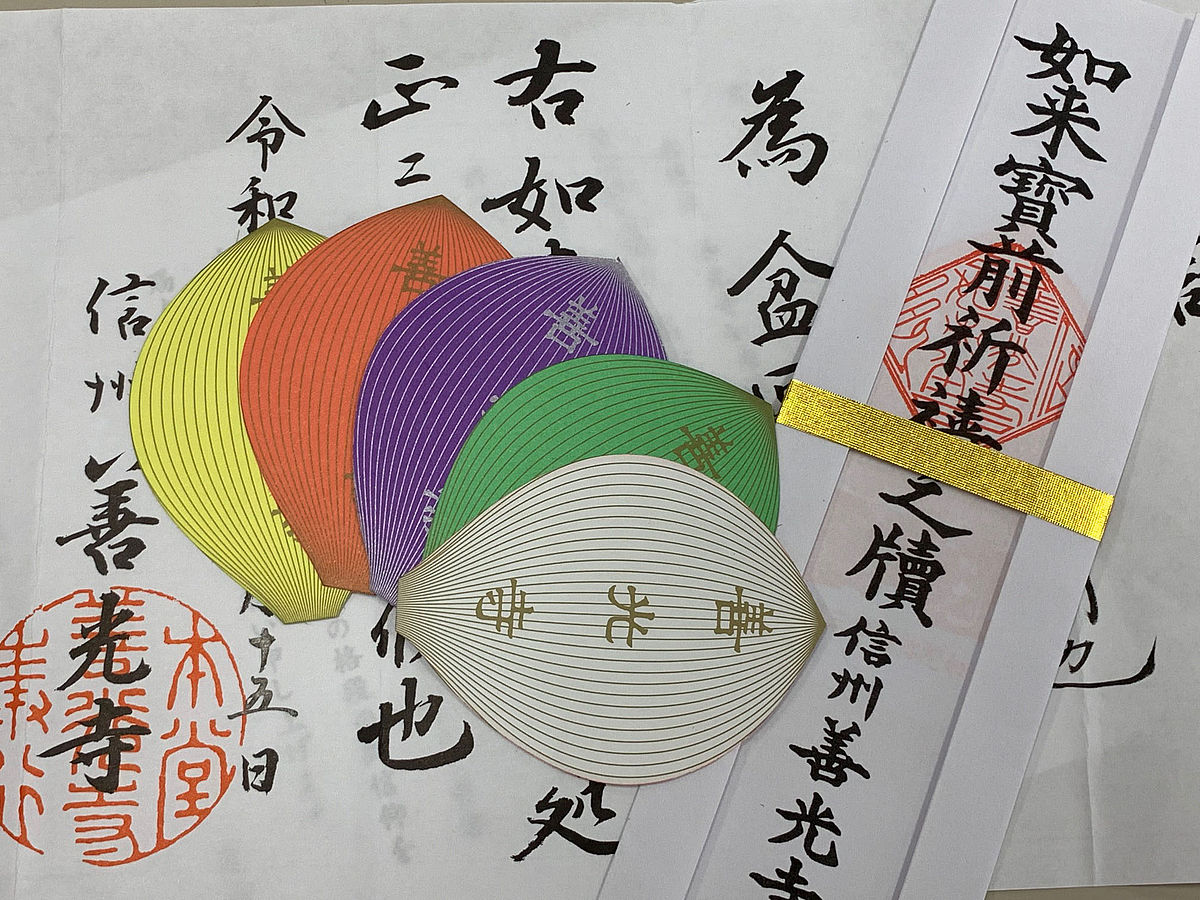 如来寶前祈祷之牘 信州善光寺
為 盆
右 如
処
正二
也
令和
十五日
信州 善光寺
本堂
善光寺
善
善
善
善光寺